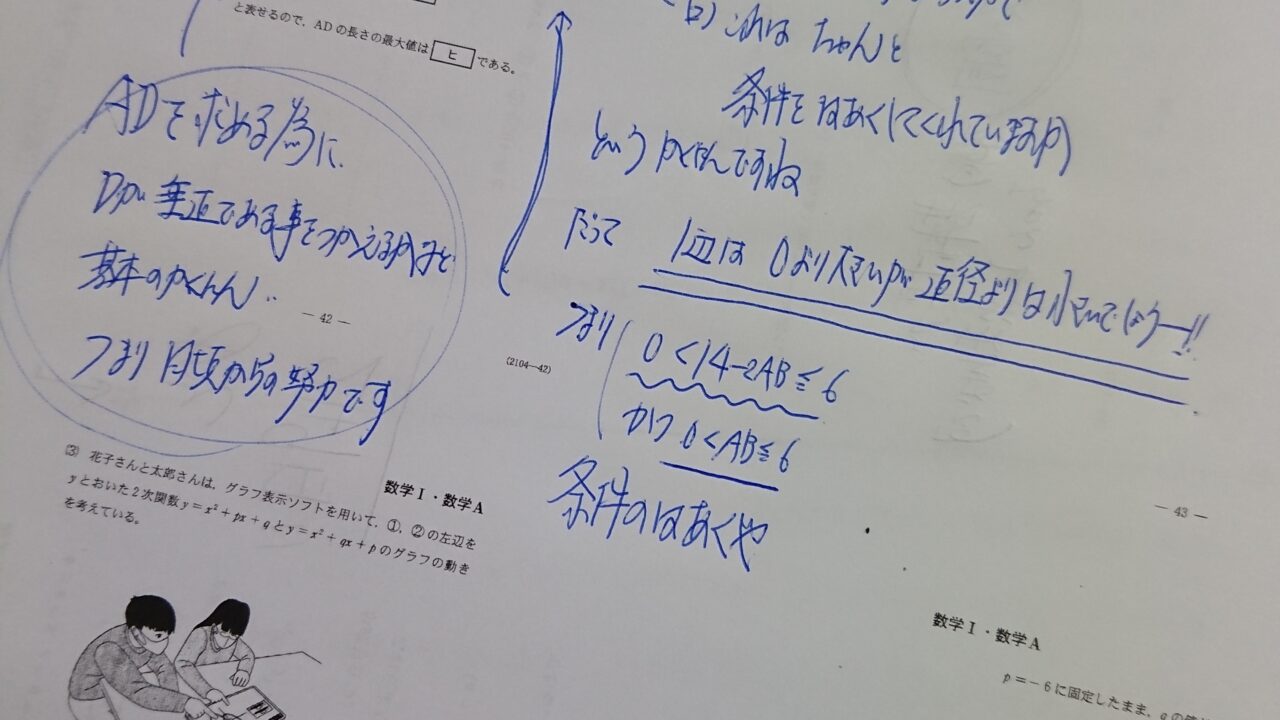 と表せるので、ADの長さの最大値は ヒ である。
ADを求める為に、
Dが垂直である事をつかえるかなど
基本のかくにん..
— 42 —
つまり日頃からの努力です
(2104—42)
(3) 花子さんと太郎さんは、グラフ表示ソフトを用いて、①、②の左辺を
yとおいた2次関数 y = x² + px + q と y = x² + qx + p のグラフの動き
を考えている。
数学Ⅰ・数学A
(ロ) これは ちゃんと
条件をはあくしてくれていますか
というかくにんですね
だって 1辺は 0より大きいが 直径よりは小さいでしょう—!!
つまり
0<14-2AB≦6
かつ 0<AB≦6
条件のはあくや
— 43 —
数学Ⅰ・数学A
p = −6 に固定したまま、qの値